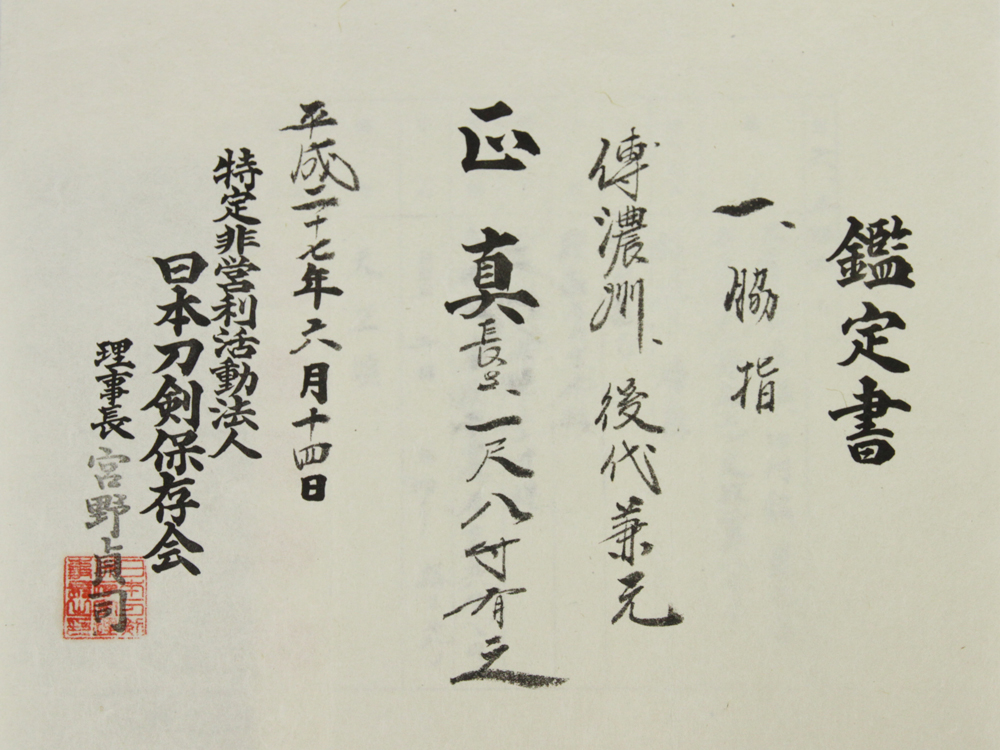 鑑定書
一、脇指
傳濃州、後代兼元
正真
長さ、一尺八寸有之
平成二十七年六月十四日
特定非営利活動法人
日本刀剣保存会
理事長 宮野貞司